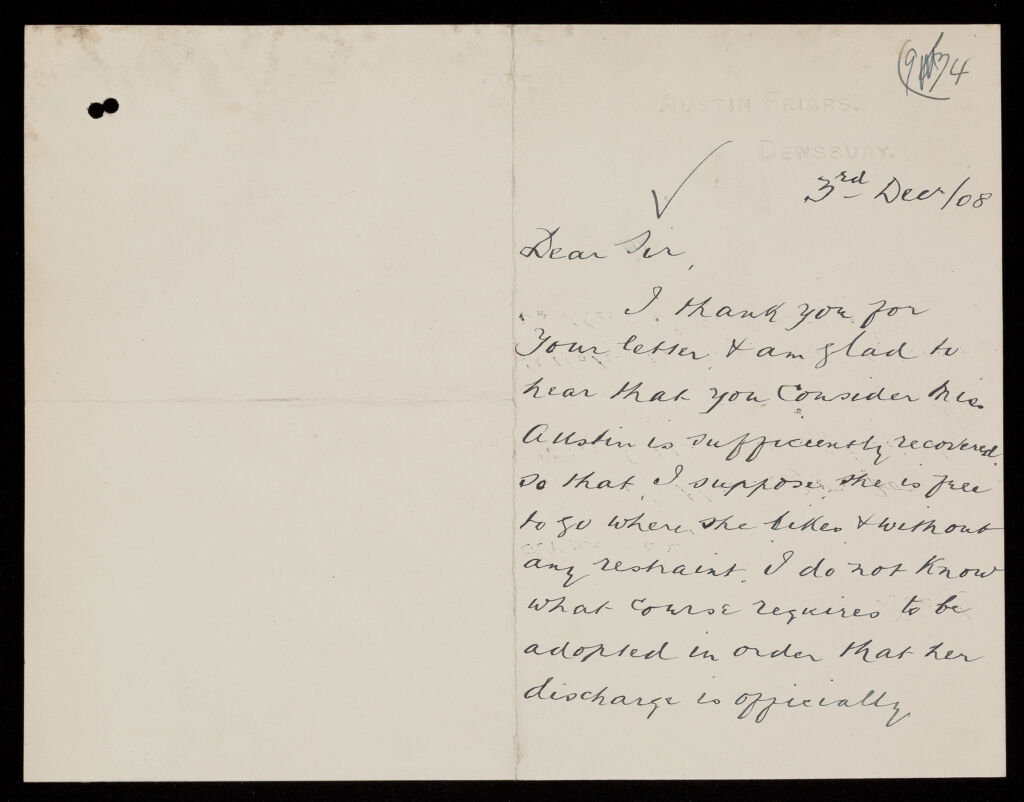 74
AUSTIN FRIARS.
DEWSBURY.
3rd Decr/08
Dear Sir,
I thank you for
Your letter & am glad to
hear that you Consider Miss
Austin is sufficiently recovered
so that I suppose she is free
to go where she likes & without
any restraint. I do not Know
what course requires to be
adopted in order that her
discharge is officially